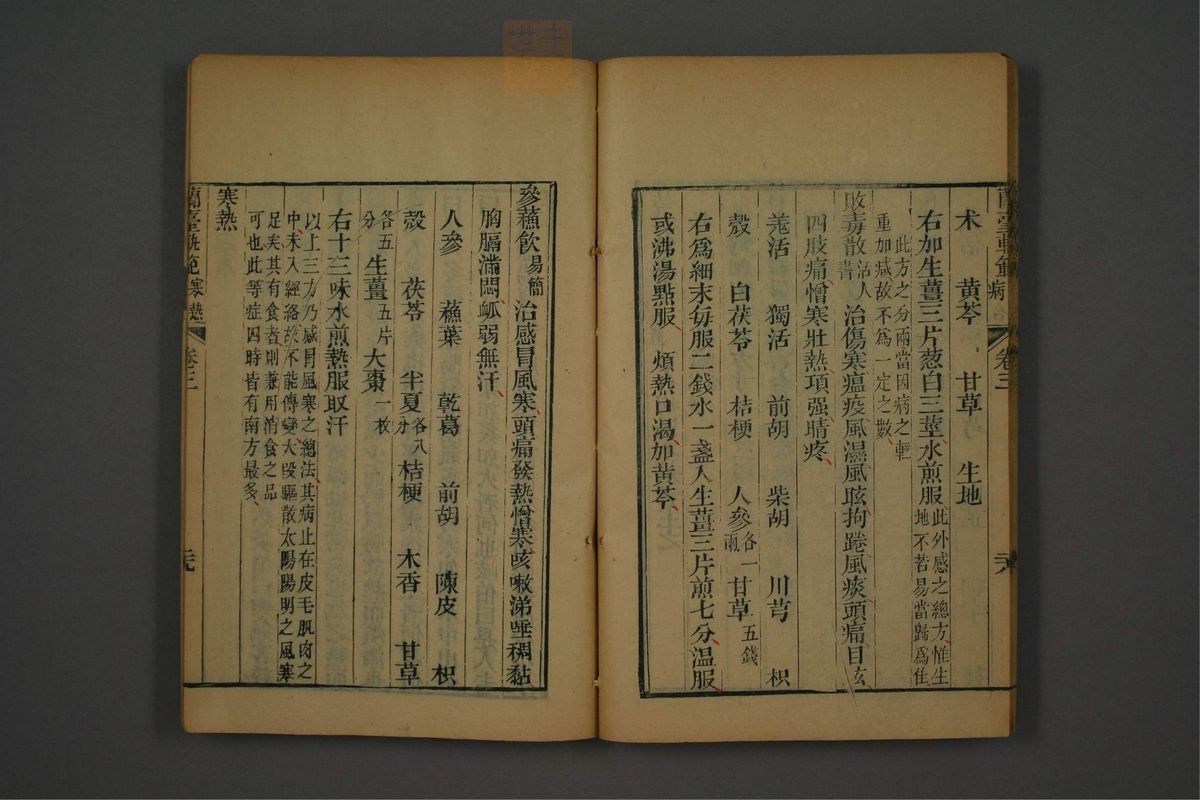 术　黄芩　甘草　生地
右加生薑三片葱白三莖水煎服此外感之總方惟生地不若易當歸爲佳
此方之分兩當因病之輕重加減故不爲一定之數
敗毒散活人書　治傷寒瘟疫風濕風眩拘踡風痰頭痛目眩
四肢痛憎寒壯熱項强睛疼
羗活　獨活　前胡　柴胡　川芎　枳
殼　白茯苓　桔梗　人參各一兩　甘草五錢
右爲細末每服二錢水一盞入生薑三片煎七分温服
或沸湯點服　煩熱口渴加黄芩
參蘓飲易簡　治感冒風寒頭痛發熱憎寒咳嗽涕唾稠黏
胸膈滿悶脉弱無汗
人參　蘓葉　乾葛　前胡　陳皮　枳
殼　茯苓　半夏各八分　桔梗　木香　甘草
各五分　生薑五片　大棗一枚
右十三味水煎熱服取汗
以上三方乃感冒風寒之總法其病止在皮毛肌肉之
中未入經絡故不能傳變大段驅散太陽陽明之風寒
足矣其有食者則兼用消食之品
可也此等症四時皆有南方最多
寒熱
蘭臺軌範寒熱　卷三